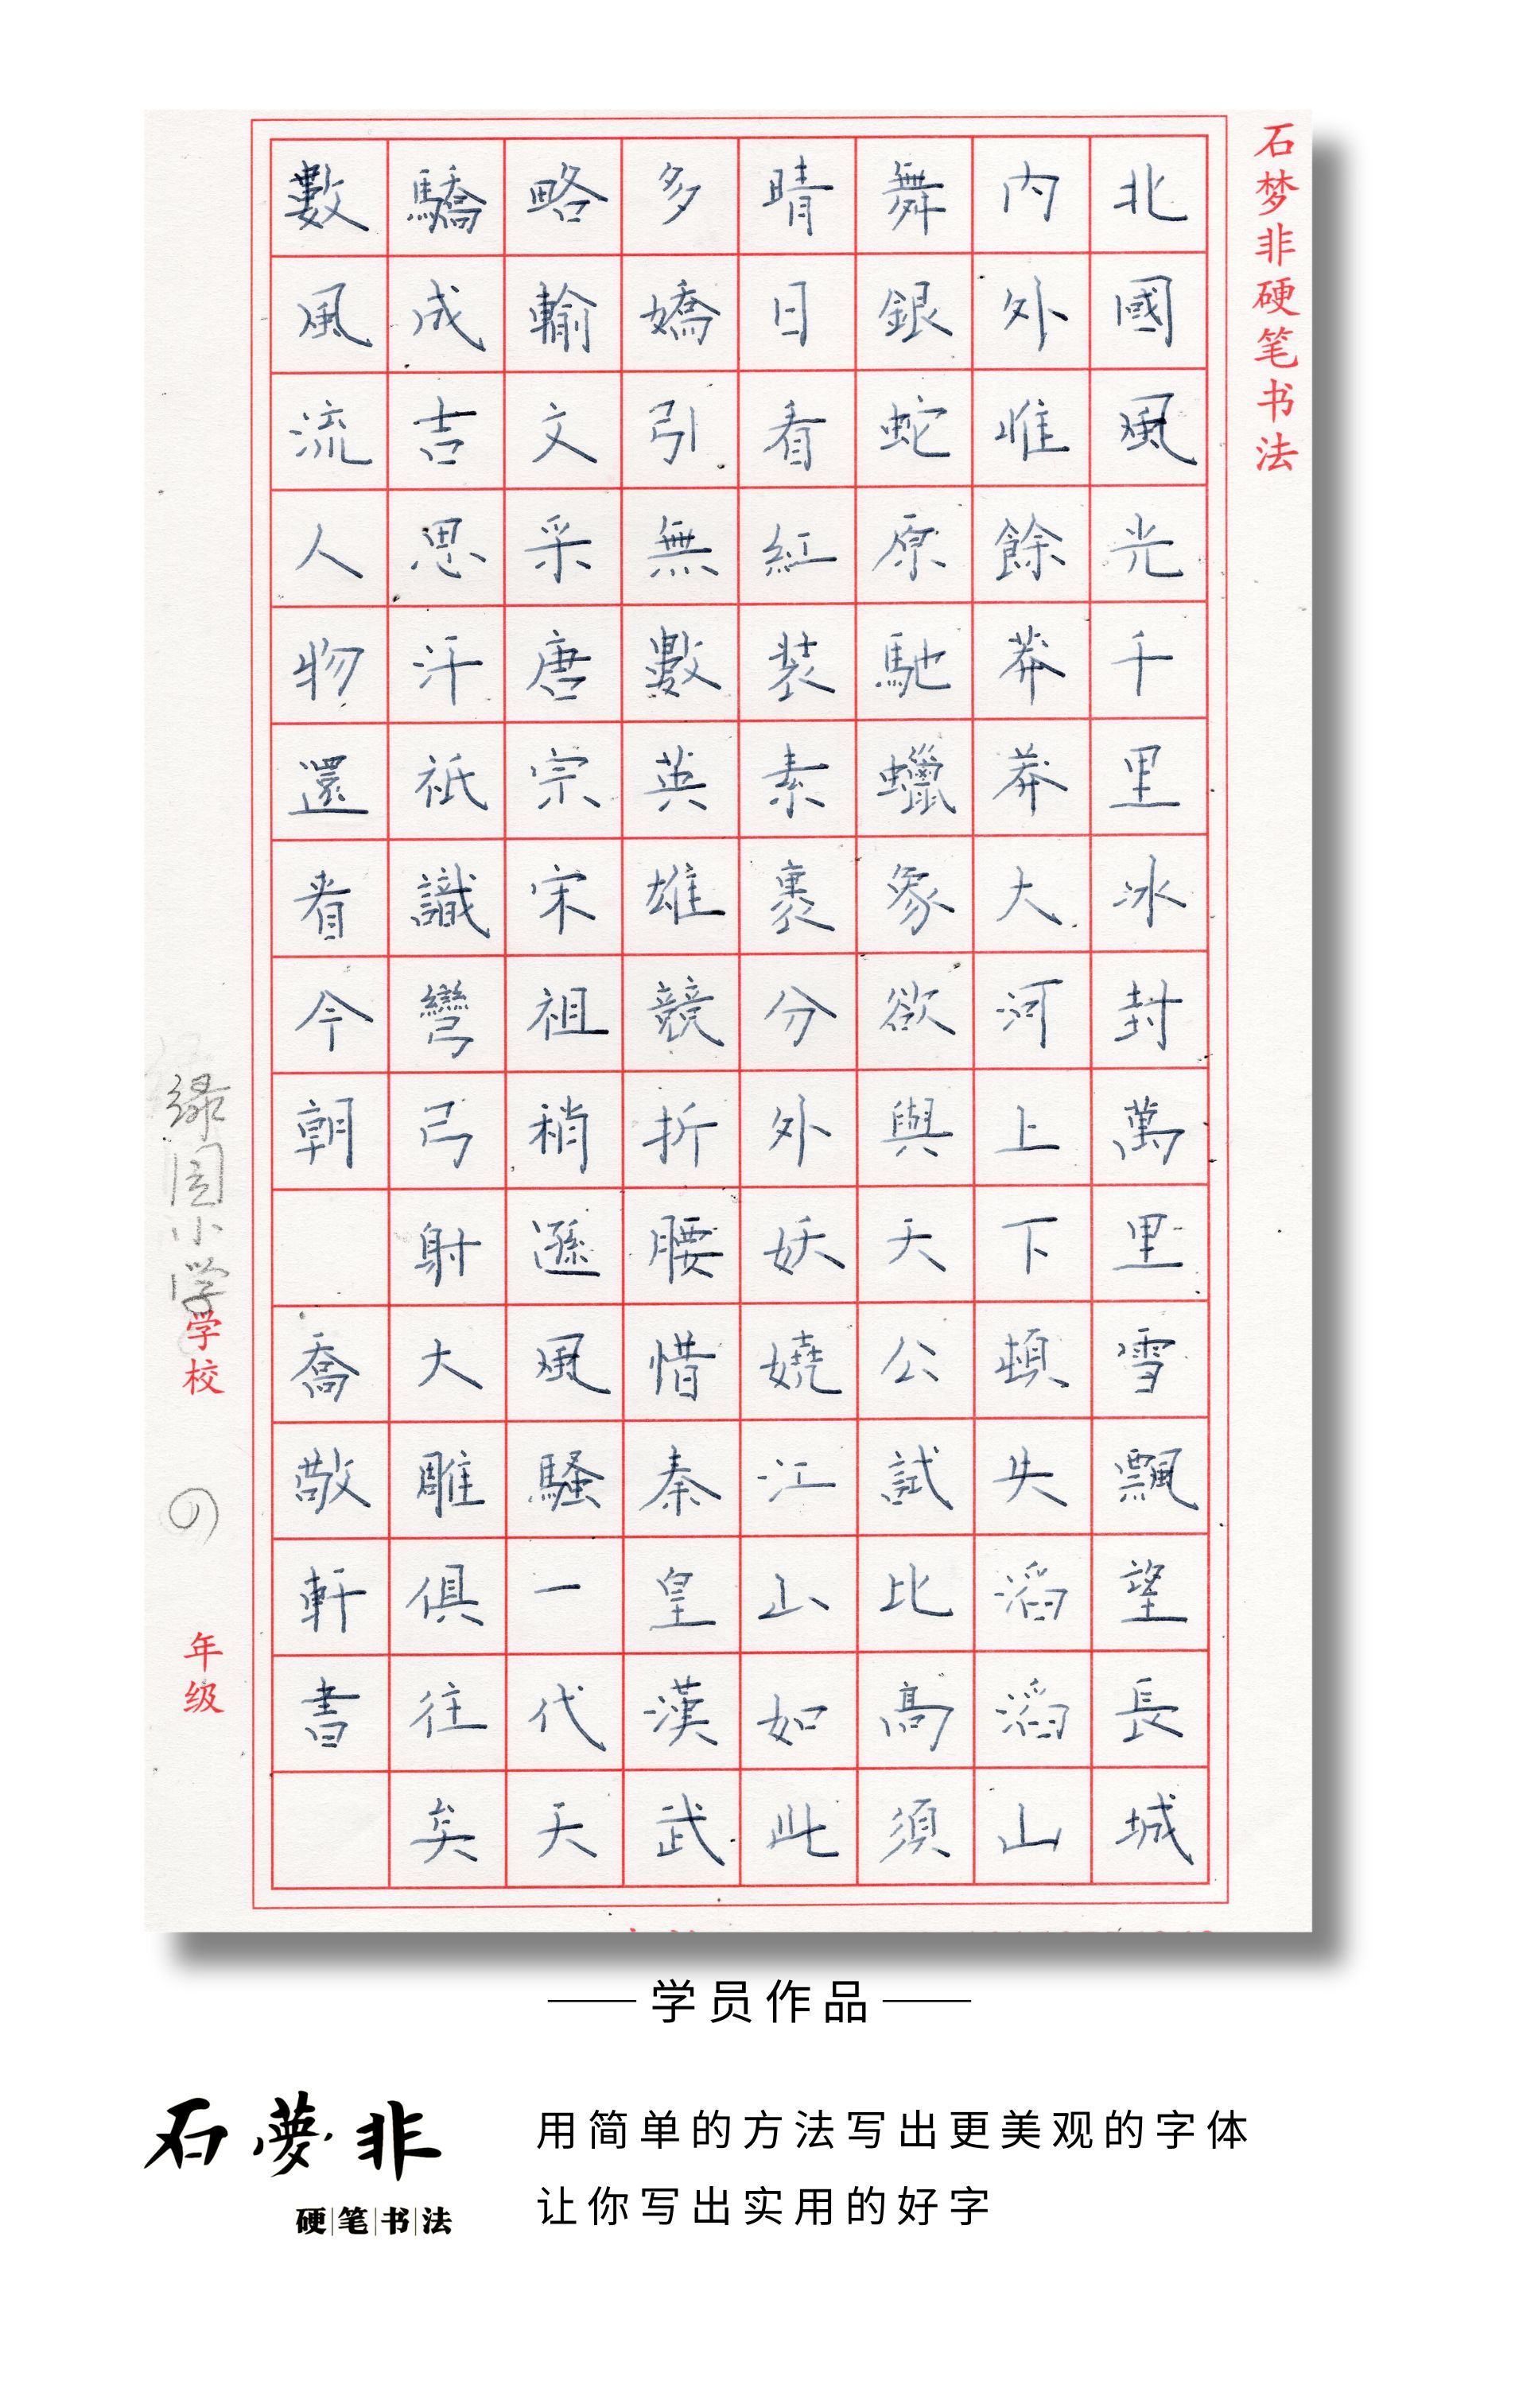 石梦非硬笔书法
北國風光千里冰封萬里雪飄望長城
内外惟餘莽莽大河上下頓失滔滔山
舞銀蛇原馳蠟象欲與天公試比高須
晴日看紅装素裹分外妖嬈江山如此
多嬌引無數英雄競折腰惜秦皇漢武
略輸文采唐宗宋祖稍遜風騷一代天
驕成吉思汗祇識彎弓射大雕俱往矣
數風流人物還看今朝 喬敬軒書
绿园小学学校 年级
学员作品
石夢非
硬笔书法
用简单的方法写出更美观的字体
让你写出实用的好字